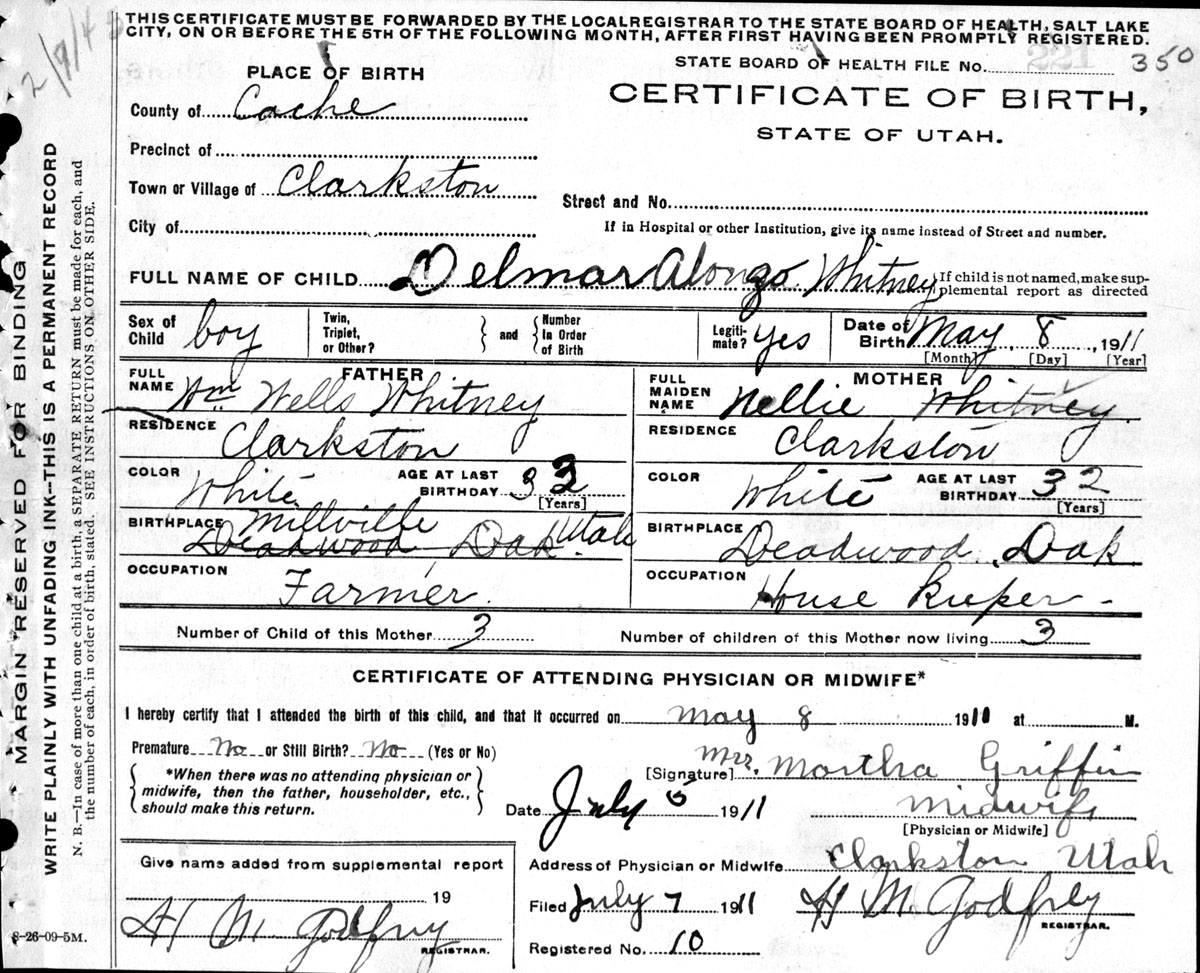 THIS CERTIFICATE MUST BE FORWARDED BY THE LOCAL REGISTRAR TO THE STATE BOARD OF HEALTH, SALT LAKE
CITY, ON OR BEFORE THE 5TH OF THE FOLLOWING MONTH, AFTER FIRST HAVING BEEN PROMPTLY REGISTERED.
STATE BOARD OF HEALTH FILE No. 350
PLACE OF BIRTH
CERTIFICATE OF BIRTH,
County of Cache
STATE OF UTAH.
Precinct of
Town or Village of Clarkston
Street and No.
City of
If in Hospital or other Institution, give its name instead of Street and number.
FULL NAME OF CHILD Delmar Alonzo Whitney
If child is not named, make sup-
plemental report as directed
Sex of Child boy
Twin, Triplet, or Other?
and
Number In Order of Birth
Legiti-mate? yes
Date of Birth May 8, 1911
[Month] [Day] [Year]
FATHER
FULL NAME Wm Wells Whitney
MOTHER
FULL MAIDEN NAME Nellie Whitney
RESIDENCE Clarkston
RESIDENCE Clarkston
COLOR White
AGE AT LAST BIRTHDAY 33
[Years]
COLOR White
AGE AT LAST BIRTHDAY 32
[Years]
BIRTHPLACE Millville Utah
Deadwood Dak
BIRTHPLACE Deadwood, Dak
OCCUPATION Farmer.
OCCUPATION House Keeper -
Number of Child of this Mother 3
Number of children of this Mother now living 3
CERTIFICATE OF ATTENDING PHYSICIAN OR MIDWIFE*
I hereby certify that I attended the birth of this child, and that it occurred on May 8 1911 at M.
Premature No or Still Birth? No (Yes or No)
*When there was no attending physician or
midwife, then the father, householder, etc.,
should make this return.
[Signature] Mrs. Martha Griffin
Date July 5 1911
Midwife
[Physician or Midwife]
Give name added from supplemental report
19
H M Godfrey
REGISTRAR.
Address of Physician or Midwife Clarkston Utah
Filed July 7 1911
H M. Godfrey
REGISTRAR.
Registered No. 10
8-26-09-5M.
MARGIN RESERVED FOR BINDING
WRITE PLAINLY WITH UNFADING INK—THIS IS A PERMANENT RECORD
N. B.—In case of more than one child at a birth, a SEPARATE RETURN must be made for each, and
the number of each, in order of birth, stated. SEE INSTRUCTIONS ON OTHER SIDE.